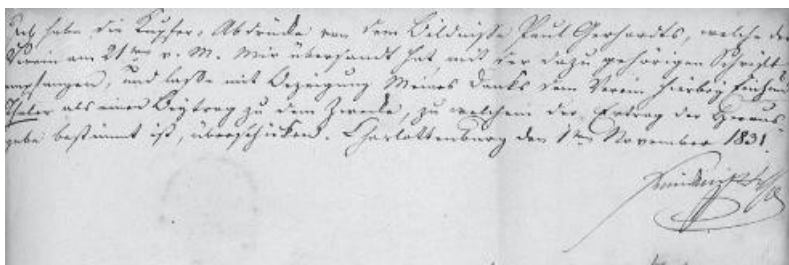 Ich habe die Kupfer-Abdrücke von dem Bildnisse Paul Gerhardts, welche der
Verein am 21ten v. M. Mir übersandt hat, mit der dazu gehörigen Schrift
empfangen, und lasse mit Bezeigung Meines Danks dem Verein hierbey
Thaler als einen Beytrag zu dem Zwecke, zu welchem der Ertrag der Heraus-
gabe bestimmt ist, überschicken. Charlottenburg den 1ten November 1831.